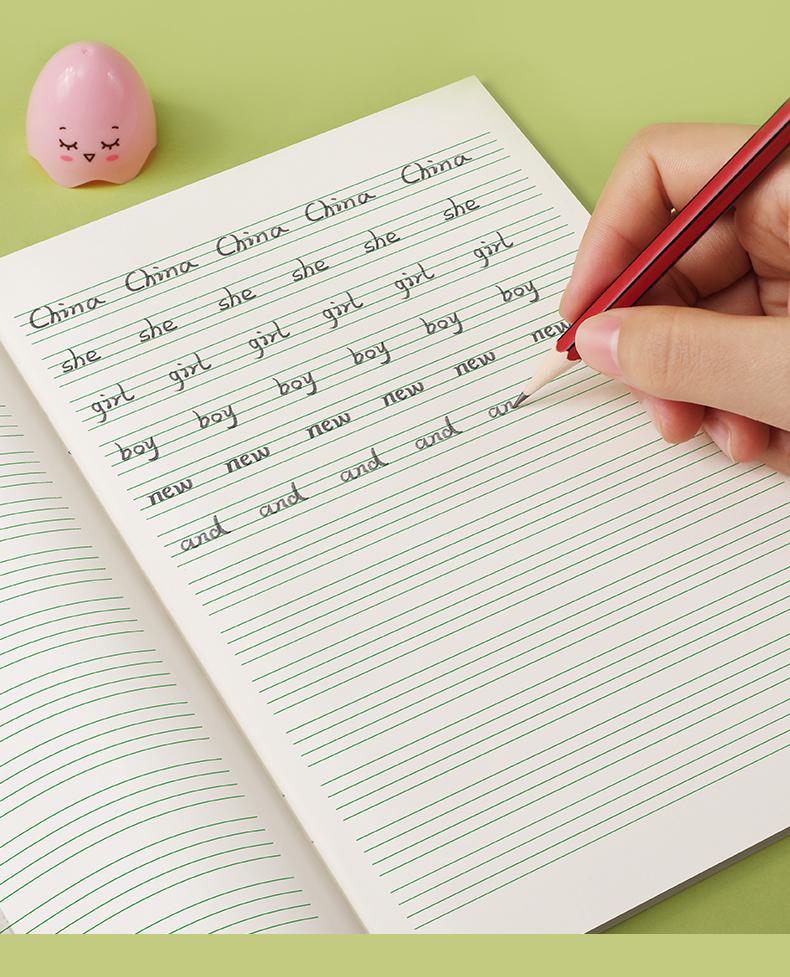 China China China China China
she she she she she she
girl girl girl girl girl girl
boy boy boy boy boy boy
new new new new new new
and and and and an